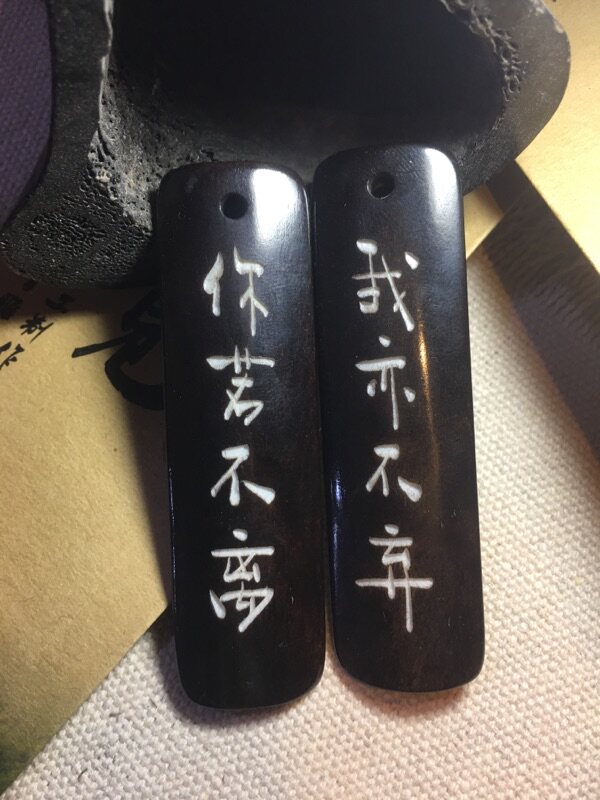 你若不离
我亦不弃